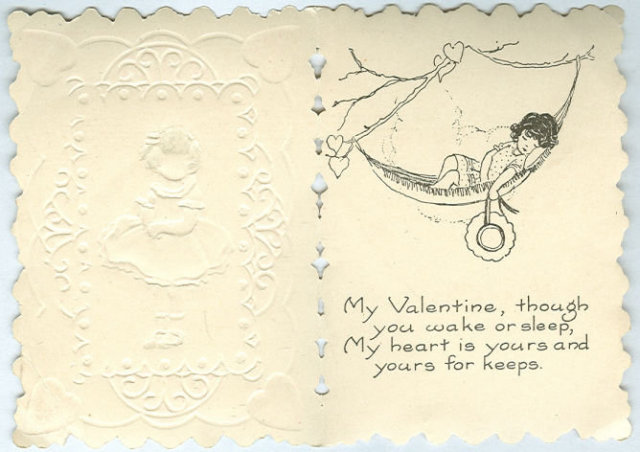 My Valentine, though
you wake or sleep,
My heart is yours and
yours for keeps.